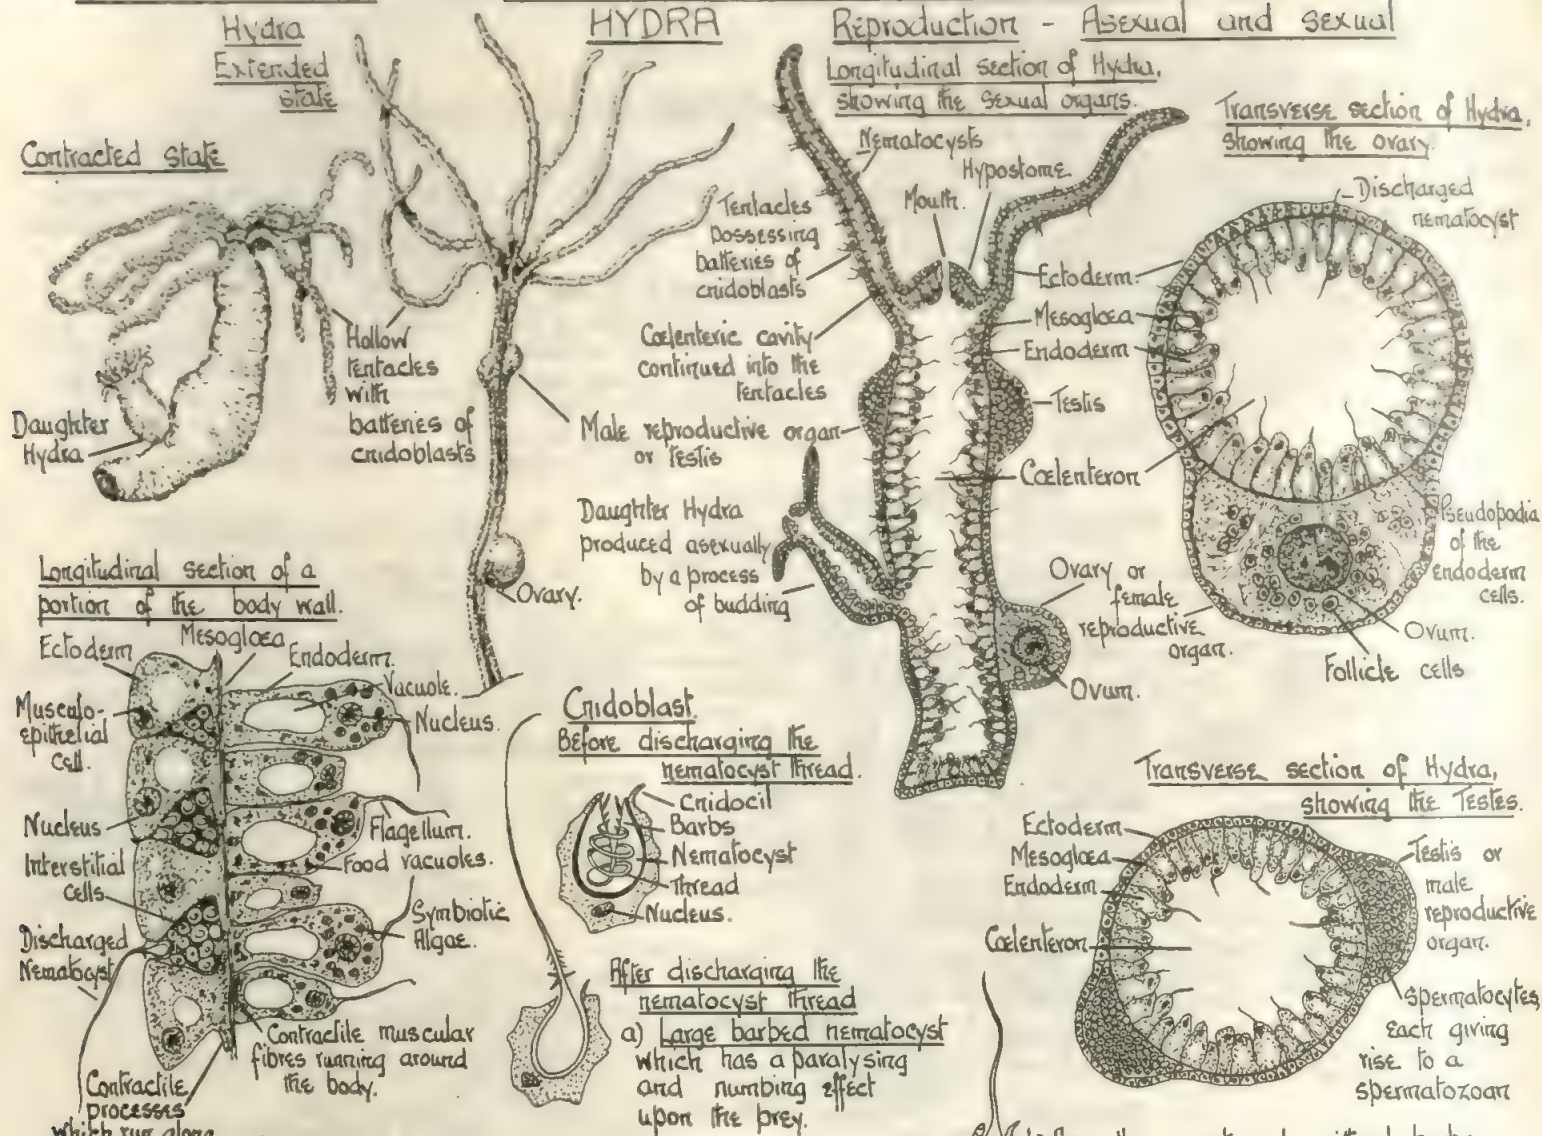 HYDRA
Reproduction - Asexual and sexual
Hydra
Extended
state
Contracted state
Daughter
Hydra
Hollow
tentacles
with
batteries of
cnidoblasts
Male reproductive organ
or testis
Ovary.
Longitudinal section of Hydra,
showing the sexual organs.
Nematocysts
Hypostome
Mouth.
Tentacles
possessing
batteries of
cnidoblasts
Cœlenteric cavity
continued into the
tentacles
Ectoderm.
Mesoglœa
Endoderm
Testis
Cœlenteron
Daughter Hydra
produced asexually
by a process
of budding
Ovary or
female
reproductive
organ.
Ovum.
Transverse section of Hydra,
showing the ovary.
Discharged
nematocyst
Pseudopodia
of the
endoderm
cells.
Ovum.
Follicle cells
Longitudinal section of a
portion of the body wall.
Mesoglœa
Ectoderm
Endoderm.
Vacuole.
Nucleus.
Musculo-
epithelial
Cell.
Nucleus
Flagellum.
Food vacuoles.
Interstitial
cells
Symbiotic
Algae.
Discharged
Nematocyst
Contractile muscular
fibres running around
the body.
Contractile
processes
which run along
Cnidoblast.
Before discharging the
nematocyst thread.
Cnidocil
Barbs
Nematocyst
Thread
Nucleus.
After discharging the
nematocyst thread
a) Large barbed nematocyst
which has a paralysing
and numbing effect
upon the prey.
Transverse section of Hydra,
showing the Testes.
Ectoderm
Mesoglœa
Endoderm
Cœlenteron
Testis or
male
reproductive
organ.
Spermatocytes,
each giving
rise to a
spermatozoan